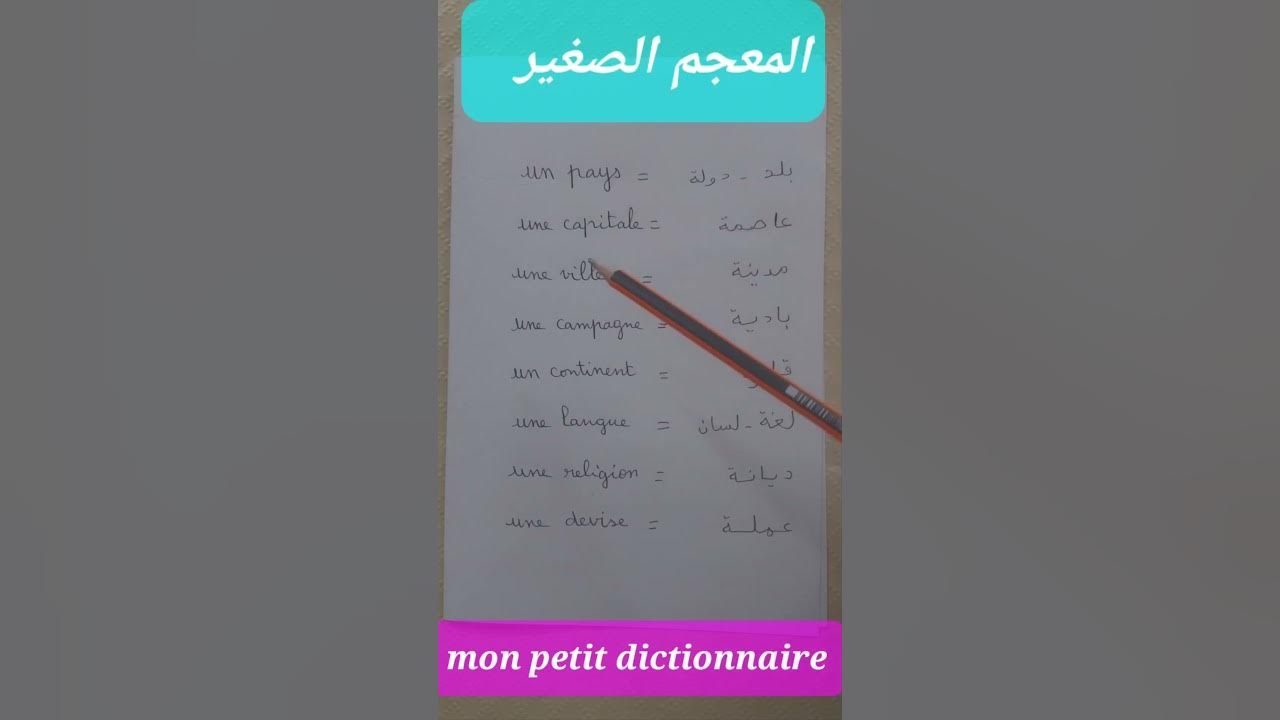 المعجم الصغير
un pays = بلد - دولة
une capitale = عاصمة
une ville = مدينة
une campagne = بادية
un continent =
une langue = لغة - لسان
une religion = ديانة
une devise = عملة
mon petit dictionnaire